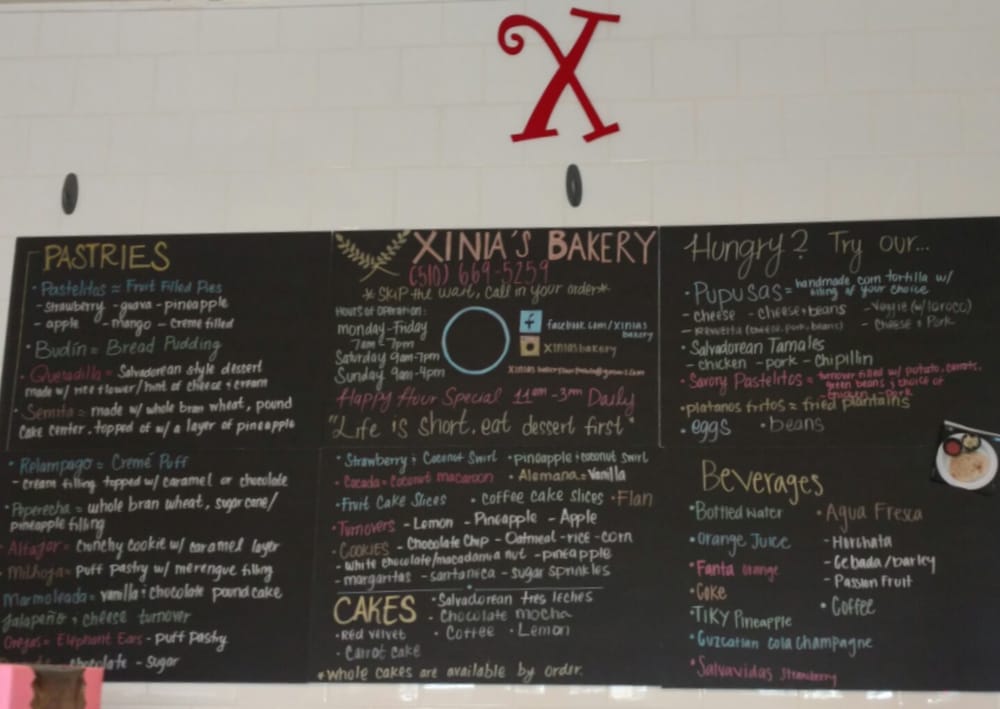 X
PASTRIES
• Pastelitos = Fruit Filled Pies
- Strawberry - guava - pineapple
- apple - mango - Creme filled
• Budín = Bread Pudding
• Quesadilla = Salvadorean style dessert
made w/ rice flower/hint of cheese + cream
• Semita = made w/ whole bran wheat, pound
cake center. topped of w/ a layer of pineapple
• Relampago = Cremé Puff
- cream filling topped w/ caramel or chocolate
• Peperecha = whole bran wheat, sugar cane/
pineapple filling
• Alfajor = Crunchy cookie w/ caramel layer
• Milhoja = puff pastry w/ merengue filling
Marmoleada = vanilla + chocolate pound cake
Jalapeño + cheese turnover
Orejas = Elephant Ears - puff pastry
chocolate - sugar
XINIA'S BAKERY
(510) 669-5259
* Skip the wait, call in your order *
Hours of Operation:
monday - Friday
7am - 7pm
Saturday 9am - 7pm
Sunday 9am - 4pm
f facebook.com/xinias
bakery
xiniasbakery
Happy Hour Special 11am - 3pm Daily
"Life is short. eat dessert first"
• Strawberry + Coconut Swirl • pineapple + coconut swirl
• Cocada = Coconut macaroon • Alemana = Vanilla
• Fruit Cake Slices • coffee cake slices • Flan
• Turnovers - Lemon - Pineapple - Apple
• Cookies - Chocolate Chip - Oatmeal - rice - corn
- white chocolate/macadamia nut - pineapple
- margaritas - santanica - sugar sprinkles
CAKES • Salvadorean tres leches
• Chocolate mocha
• Red velvet • Coffee • Lemon
• Carrot cake
* Whole cakes are available by order.
Hungry? Try our...
• Pupusas = handmade corn tortilla w/
filling of your choice
- cheese - cheese + beans - veggie (w/ loroco)
- revuelta (cheese, pork, beans) - Cheese + Pork
• Salvadorean Tamales
- chicken - pork - chipillin
• Savory Pastelitos = turnover filled w/ potato, carrots,
green beans + choice of
- chicken - pork
• platanos fritos = fried plantains
• eggs • beans
Beverages
• Bottled Water
• Orange Juice
• Fanta orange
• Coke
• TIKY Pineapple
• Cuzcatlan cola champagne
• Salvavidas strawberry
• Agua Fresca
- Horchata
- Cebada/barley
- Passion Fruit
• Coffee